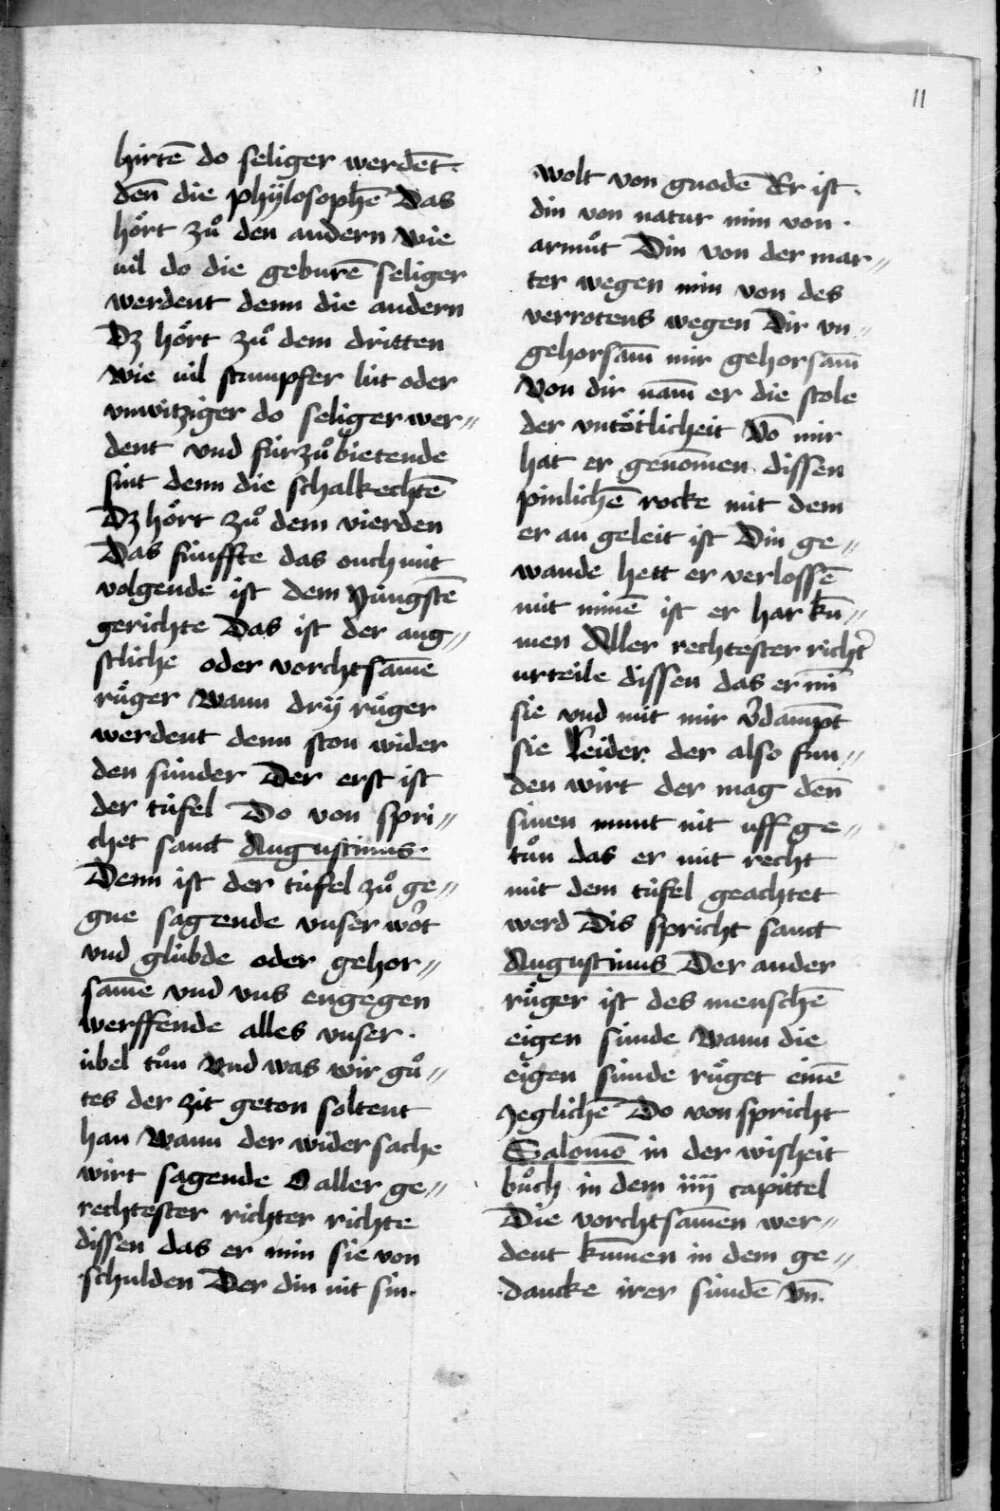 11
hirtē do seliger werdēt·
deñ die phÿlosophē Das
hoͤrt zuͦ den andern Wie
uil do die geburē seliger
werdent denn die andern
Dz hoͤrt zuͦ dem dritten
Wie uil stumpfer lút oder
vnwitziger do seliger wer〃
dent vnd fúrzuͦbietende
sint denn die schalkechtē
Dz hoͤrt zuͦ dem vierden
Das fúnffte das ouch mit
volgende ist dem Júngstē
gerichte Das ist der ang〃
stliche oder vorchtsam̄e
ruͤger Wann drij ruͤger
werdent denn ston wider
den súnder Der erst ist
der túfel Do von spri〃
chet sanct Augustinus·
Denn ist der túfel zuͦ ge〃
gne sagende vnser wôt
vnd glúbde oder gehor〃
sam̄e vnd vns engegen
werffende alles vnser·
úbel tuͦn Vnd was wir guͦ〃
tes der zit geton soltent
han Wann der widersache
wirt sagende O aller ge〃
rechtester richter richte
dissen das er min sie von
schulden Der din nit sin·
wolt von gnodē Er ist·
din von natur min von·
armuͦt Din von der mar〃
ter wegen min von des
verrotens wegen Dir vn〃
gehorsam̄ mir gehorsam̄
Von dir nam̄ er die stole
der vntoͤtlicheit Vō mir
hat er genom̄en dissen
pinlichē rocke mit dem
er an geleit ist Din ge〃
wande hett er verlossē
mit minē ist er har kū〃
men Aller rechtester richt̾
urteile dissen das er mī
sie vnd mit mir v̾dampt
sie Leider der also fun〃
den wirt der mag deñ
sinen munt nit uff ge〃
tuͦn das er mit recht
mit dem túfel geachtet
werd Dis spricht sanct
Augustinus Der ander
ruͤger ist des menschē
eigen súnde Wann die
eigen súnde ruͤget einē
Jeglichē Do von spricht
Salomō in der wisheit
buͦch in dem iiij capittel
Die vorchtsam̄en wer〃
dent kum̄en in dem ge〃
dancke irer súndē vn̄·